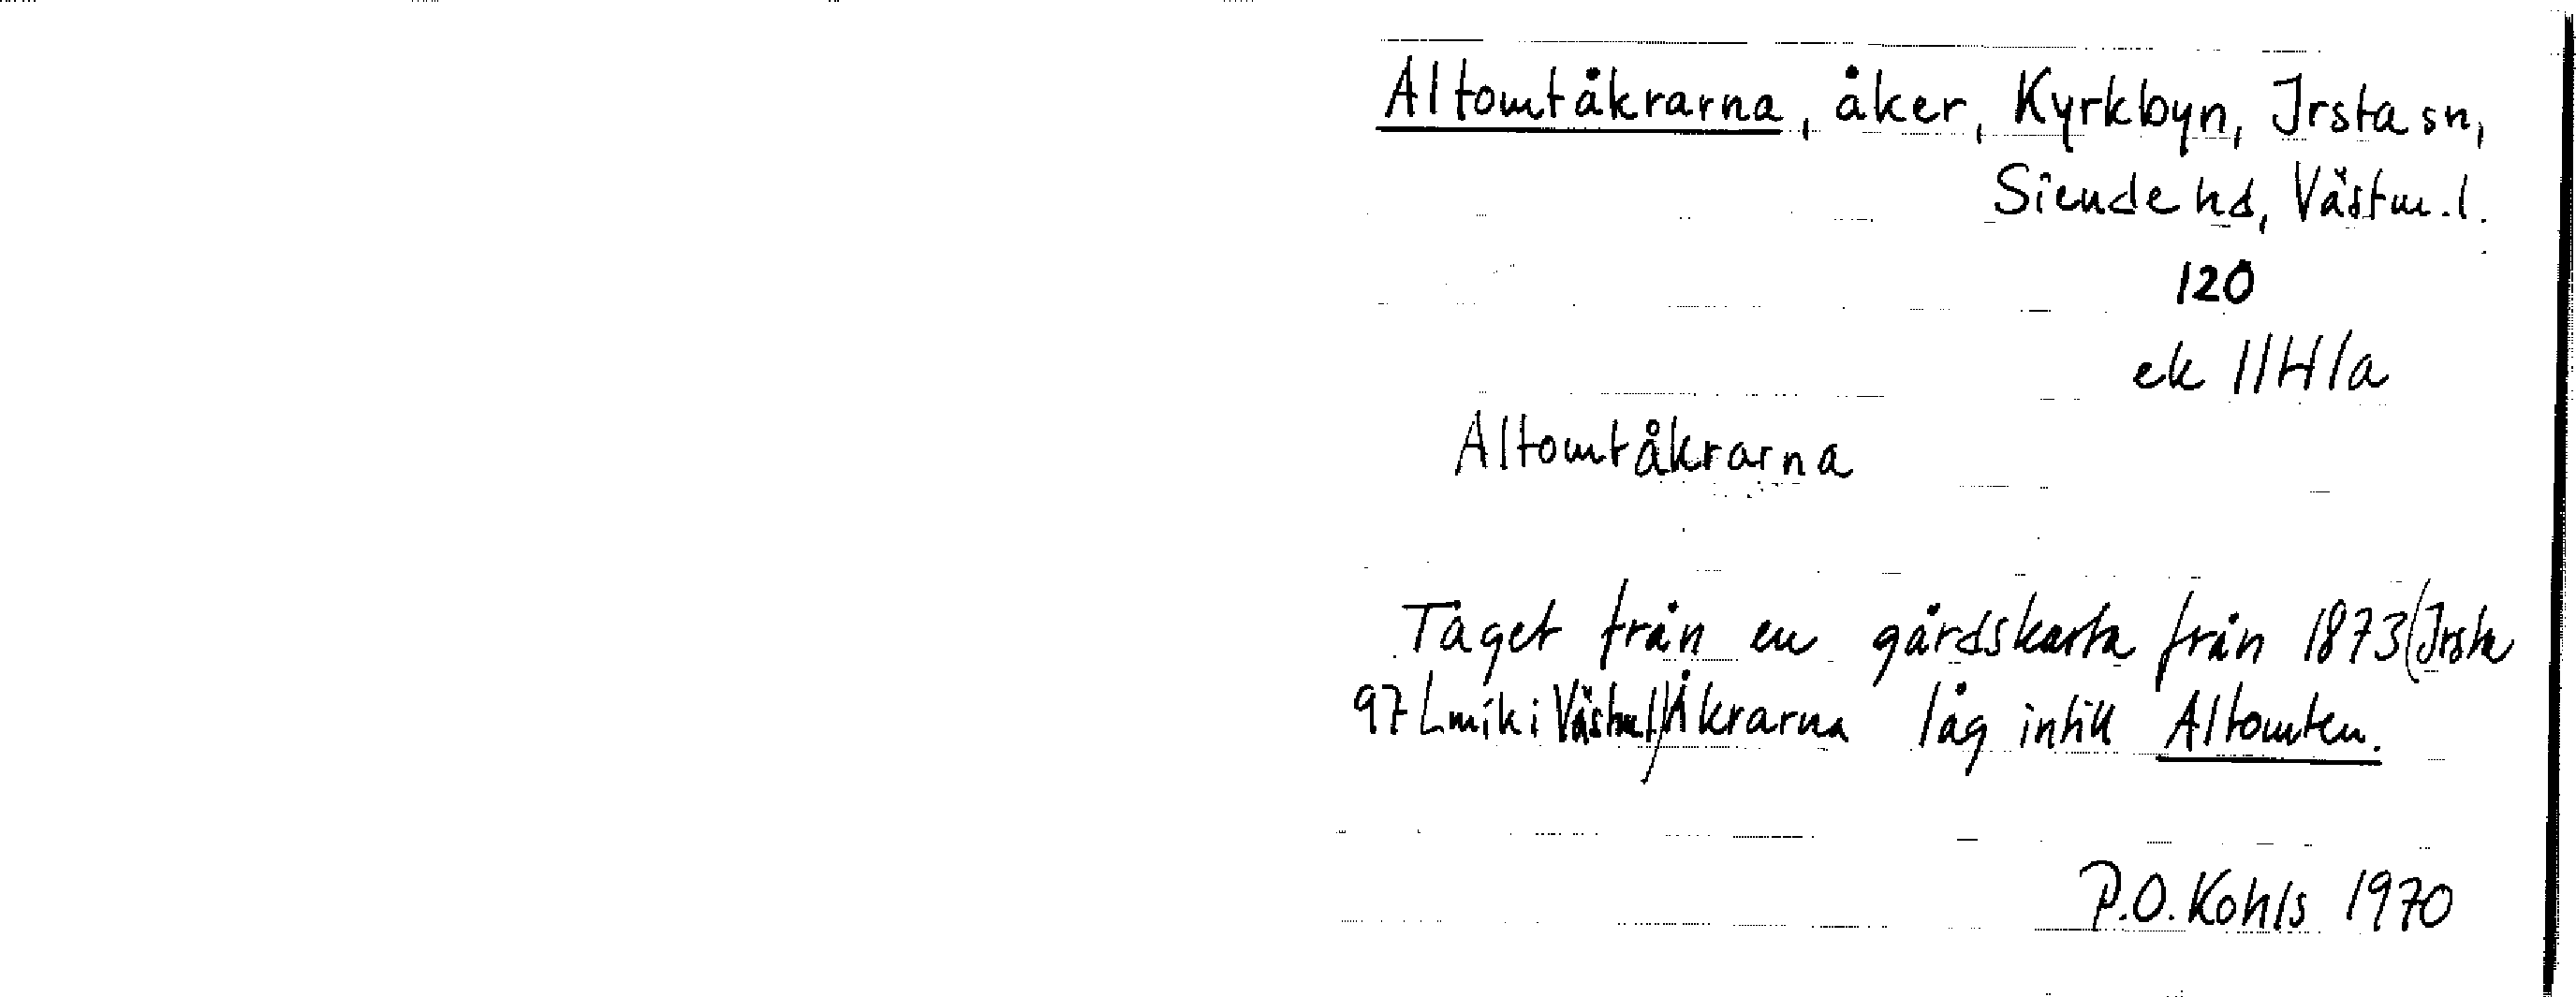 Altomtåkrarna, åker, Kyrkbyn, Irsta sn,
Siende hd, Västm.l.
120
ek 11H1a
Altomtåkrarna
Taget från en gårdskarta från 1873 (Irsta
97 Lmík i Västml) Åkrarna låg intill Altomten.
P.O. Kohls 1970